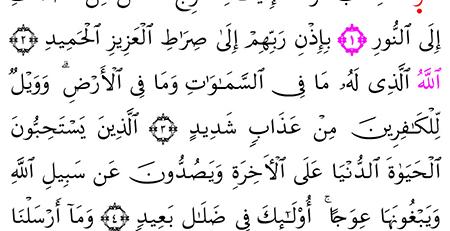 إِلَى ٱلنُّورِ ﴿١﴾ بِإِذْنِ رَبِّهِمْ إِلَىٰ صِرَٰطِ ٱلْعَزِيزِ ٱلْحَمِيدِ ﴿٢﴾
ٱللَّهُ ٱلَّذِى لَهُۥ مَا فِى ٱلسَّمَـٰوَٰتِ وَمَا فِى ٱلْأَرْضِ ۗ وَوَيْلٌ
لِّلْكَـٰفِرِينَ مِنْ عَذَابٍ شَدِيدٍ ﴿٣﴾ ٱلَّذِينَ يَسْتَحِبُّونَ
ٱلْحَيَوٰةَ ٱلدُّنْيَا عَلَى ٱلْـَٔاخِرَةِ وَيَصُدُّونَ عَن سَبِيلِ ٱللَّهِ
وَيَبْغُونَهَا عِوَجًا ۚ أُو۟لَـٰٓئِكَ فِى ضَلَـٰلٍۭ بَعِيدٍ ﴿٤﴾ وَمَآ أَرْسَلْنَا